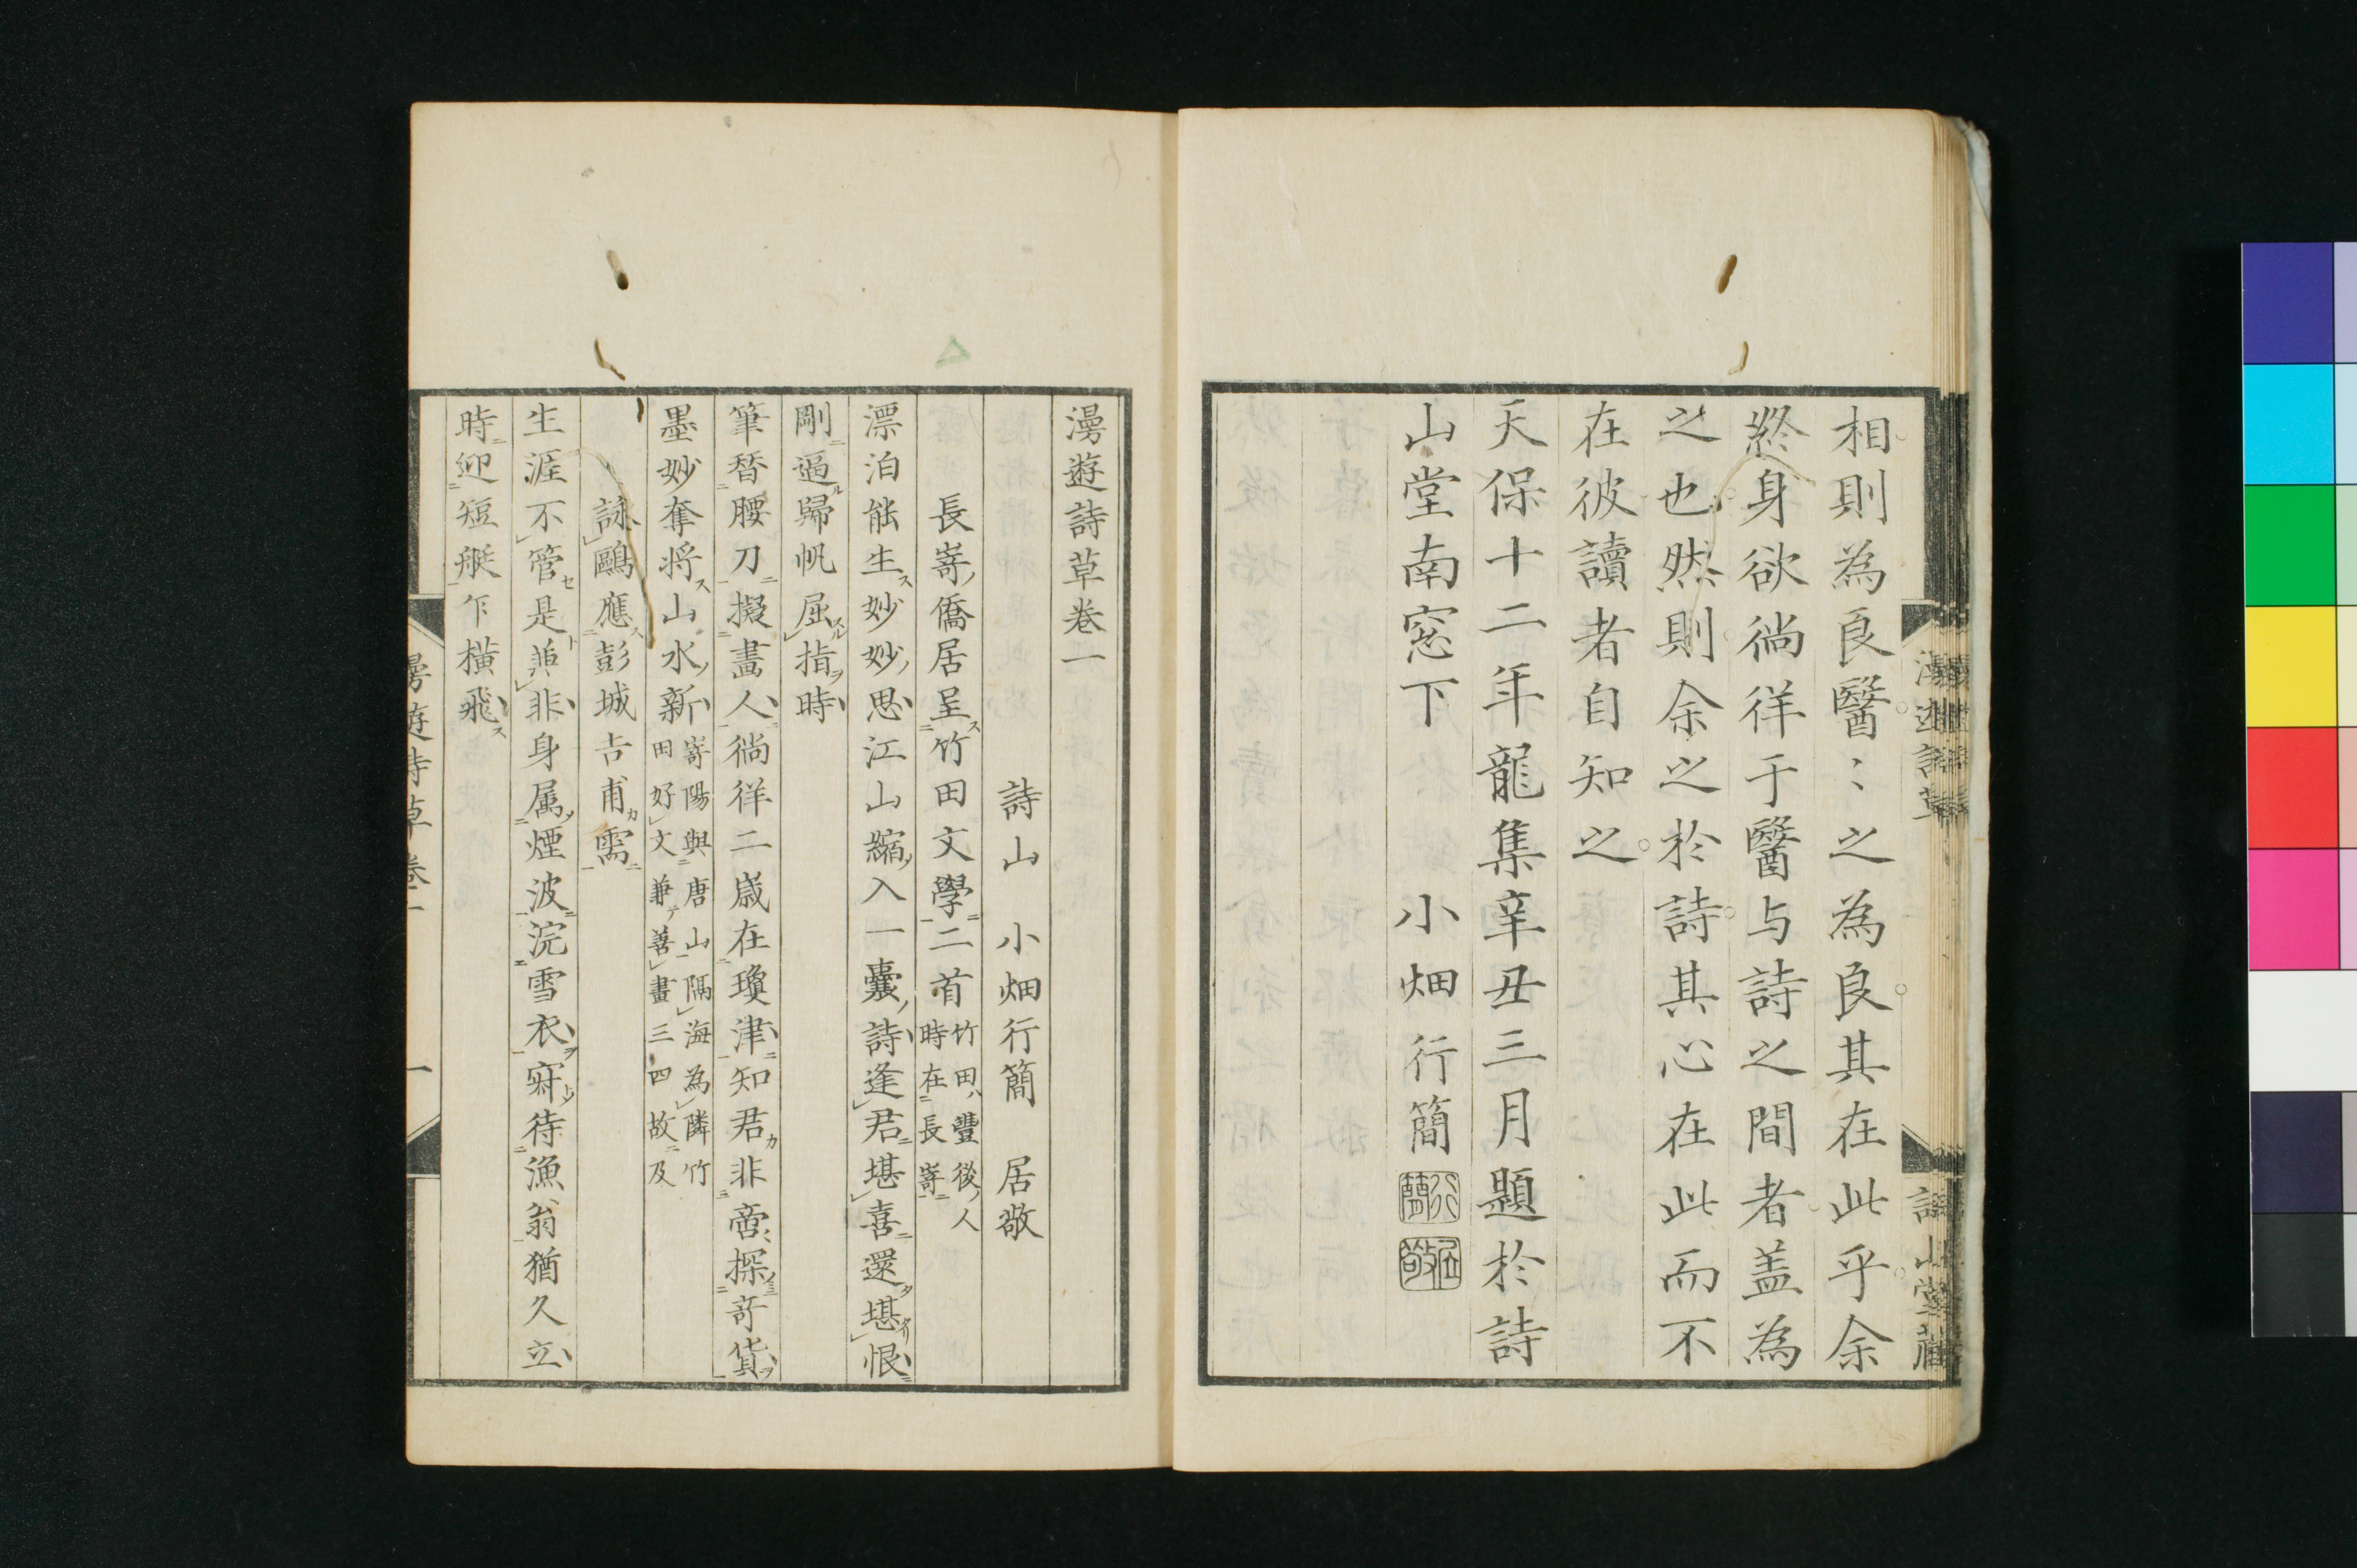 相則為良醫〻之為良其在此乎余
終身欲徜徉于醫与詩之間者盖為
之也然則余之於詩其心在此而不
在彼讀者自知之
天保十二年龍集辛丑三月題於詩
山堂南窓下　小畑行簡
行簡
居敬
漫遊詩草卷一
詩山　小畑行簡　居敬
長嵜僑居呈竹田文學二首 竹田豐後人時在長嵜
漂泊能生妙妙思江山縮入一囊詩逢君堪喜還堪恨
剛逼歸帆屈指時
筆替腰刀擬畫人徜徉二歲在瓊津知君非啻探奇貨
墨妙奪将山水新 嵜陽與唐山隔海為隣竹田好文兼善畫三四故及
詠鷗應彭城吉甫需
生涯不管是兼非身属煙波浣雪衣竂待漁翁猶久立
時迎短艇乍横飛
漫遊詩草 卷一 一